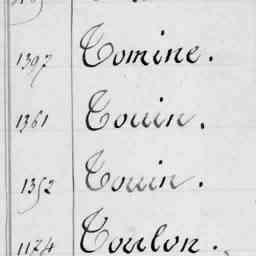 1397 Tomine.
1361 Touin.
1352 Touin.
1174 Toulon.